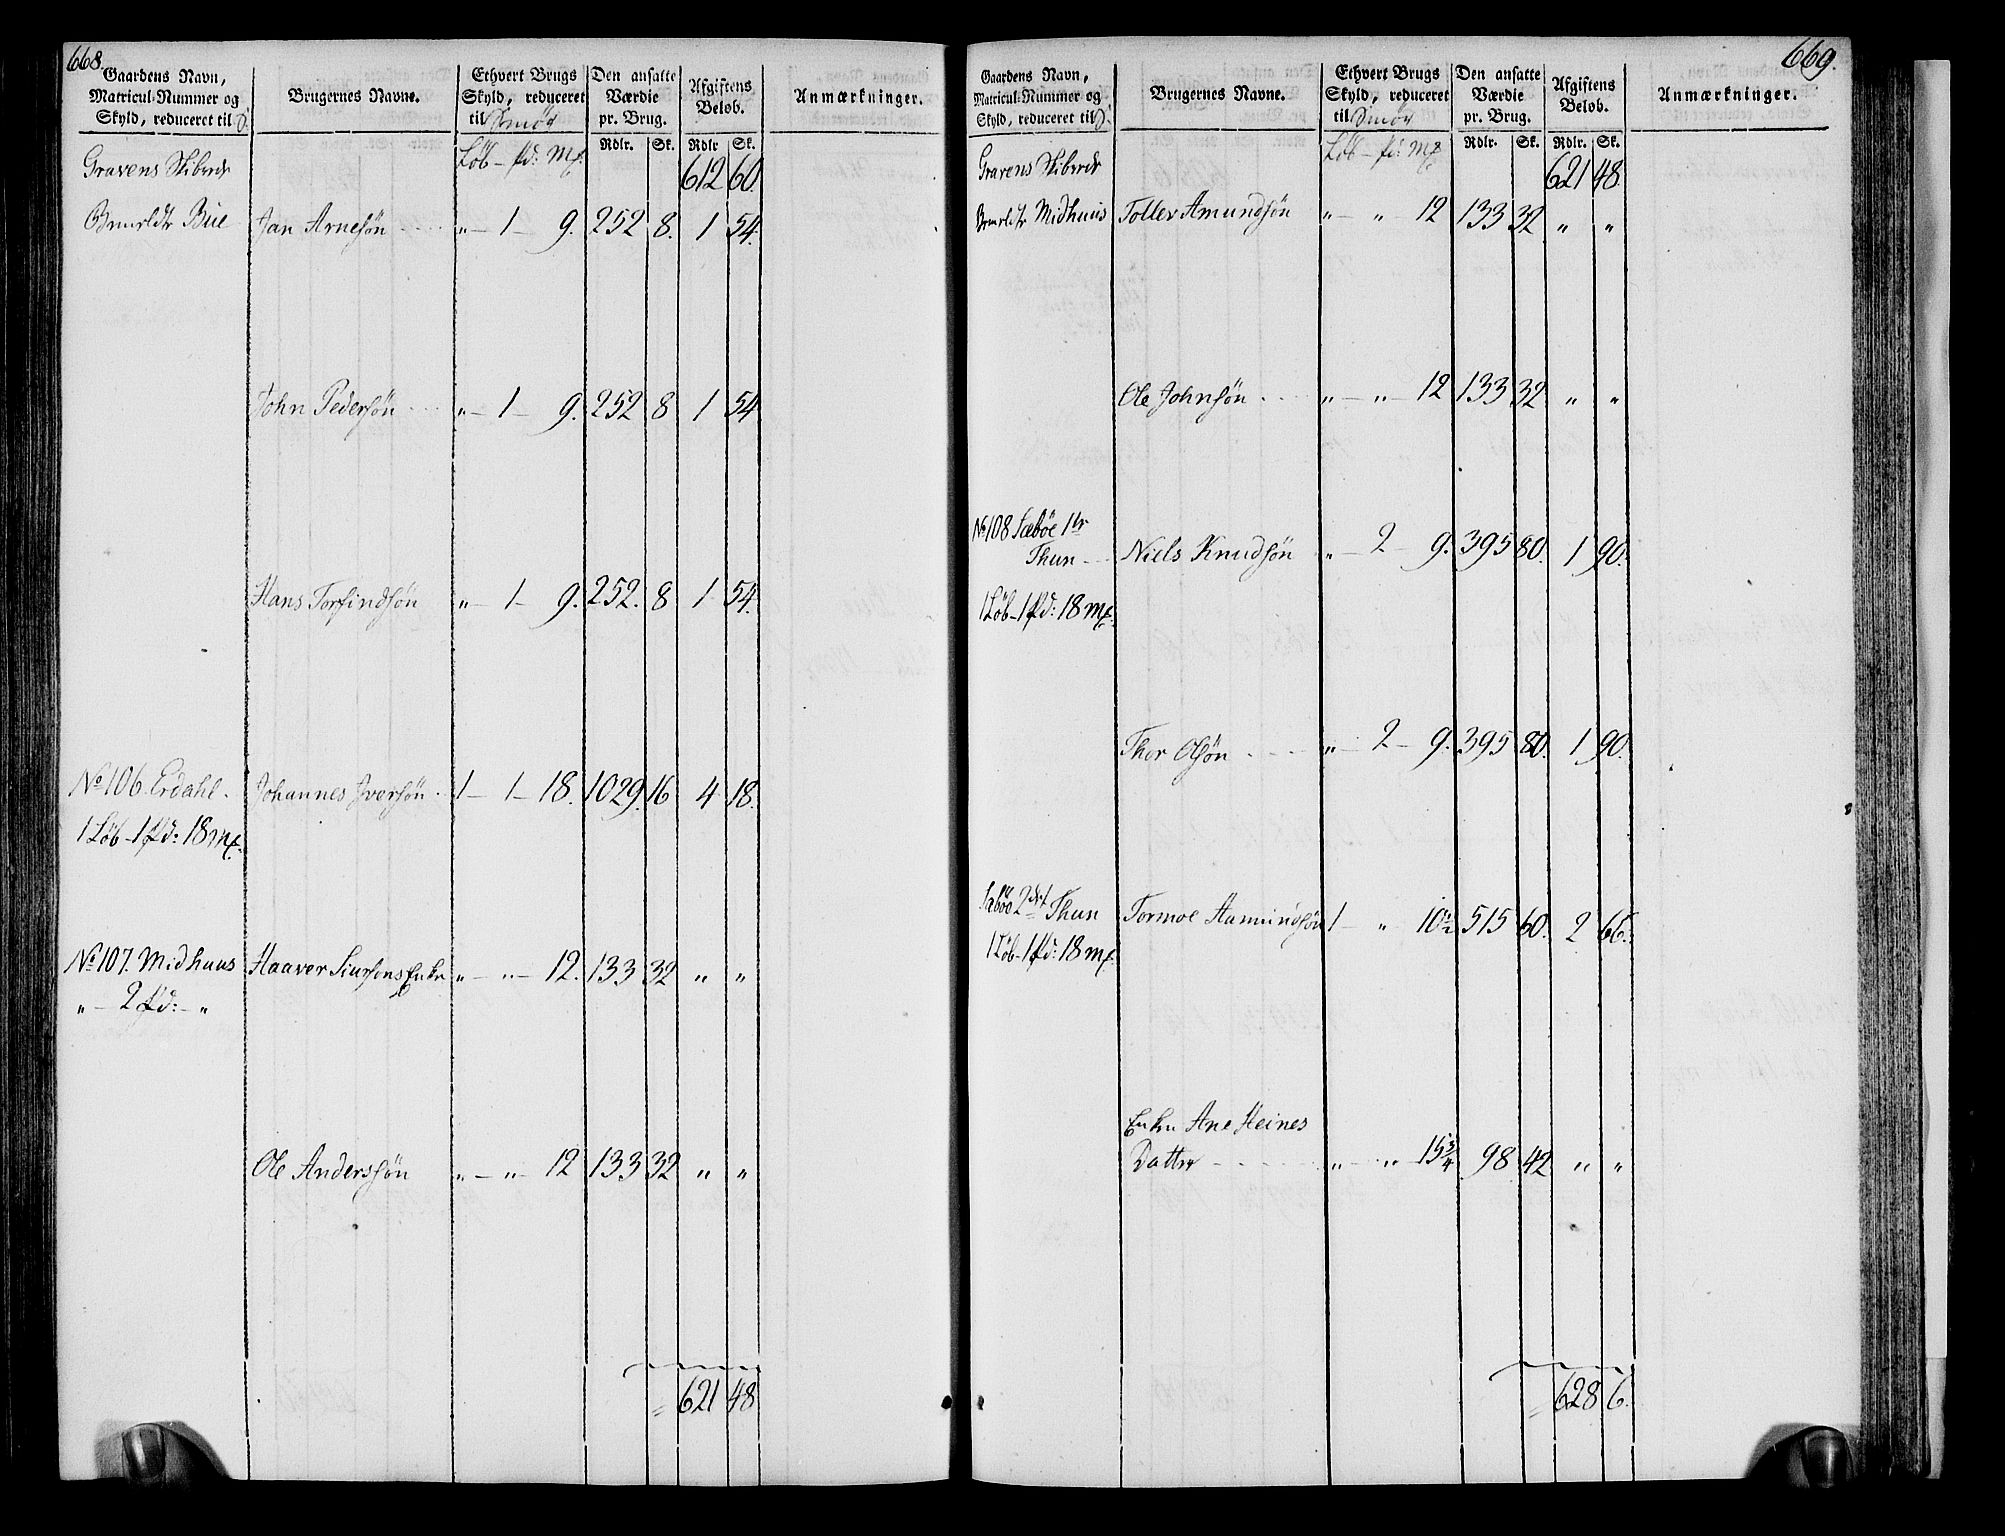 668.
Gaardens Navn, Matricul-Nummer og Skyld, reduceret til
Brugernes Navne.
Ethvert Brugs Skyld, reduceret til Smör
Den ansatte Værdie pr. Brug.
Afgiftens Beløb.
Anmærkninger.
Löb - Pd: Mk.
Rdlr. Sk. Rdlr Sk.
Gravens Skibrede 612 60.
Bue Jan Arnesön „ - 1 - 9. 252 8. 1 54.
John Pedersön „ - 1 - 9. 252 8 1 54
Hans Torfindsön „ - 1 - 9. 252. 8 1 54.
No 106. Erdahl. Johannes Iversön 1 - 1 - 18. 1029. 16 4 18.
1 Löb - 1 Pd: 18 mk.
No 107. Midhuus Haaver Siursons Enke „ - „ - 12. 133 32 „ „
„ - 2 Pd: - „
Ole Anderssön „ - „ - 12 133 32 „ „
621 48
669.
Gaardens Navn, Matricul-Nummer og Skyld, reduceret til
Brugernes Navne.
Ethvert Brugs Skyld, reduceret til Smör
Den ansatte Værdie pr. Brug.
Afgiftens Beløb.
Anmærkninger.
Löb - Pd: Mk
Rdlr. Sk. Rdlr. Sk.
Gravens Skibrede 621 48.
Midhuus Toller Amundsön „ - „ - 12 133 32 „ „
Ole Johnsön „ - „ - 12 133 32 „ „
No 108 Sæböe 1te
Thun Niels Knudsön „ - 2 - 9. 395 80. 1 90.
1 Löb - 1 Pd: 18 mk.
Thor Olsön „ - 2 - 9. 395 80. 1 90.
Sæböe 2det Thun Tormoe Hamundsön 1 - „ 10½ 515 60. 2 66.
1 Löb - 1 Pd: 18 mk.
Enke Ane Heines
Datter „ - „ - 15¾ 98 42 „ „
628 6.